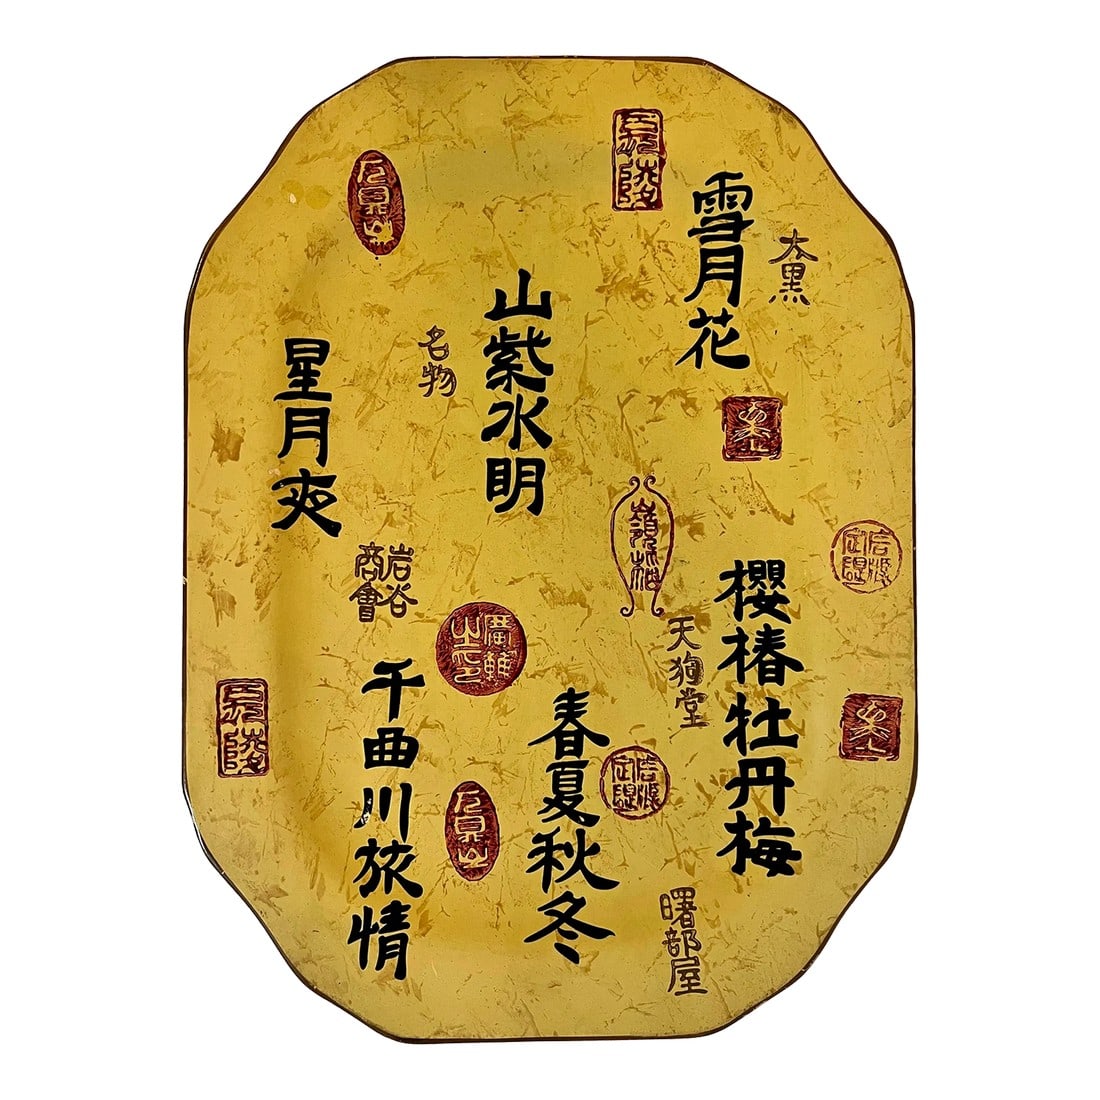 雪月花
大黒
山紫水明
名物
星月夾
嶺梅
櫻椿牡丹梅
岩谷
商會
廣輔
之印
天狗堂
千曲川旅情
春夏秋冬
曙部屋